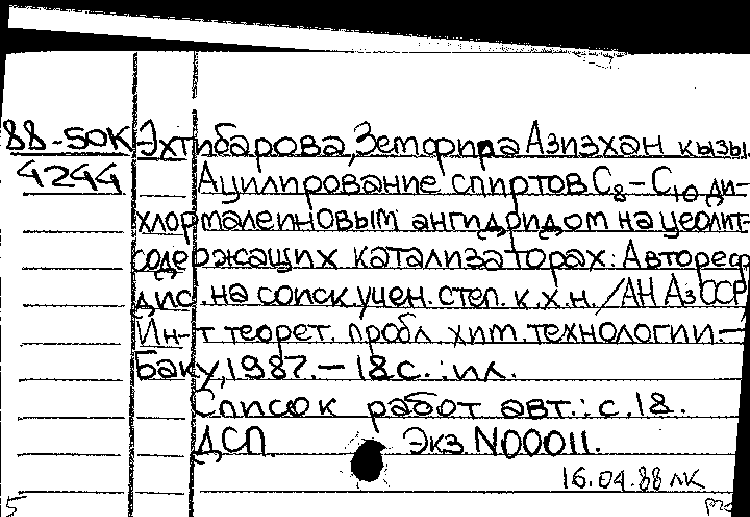 88-50К Эхтибарова, Земфира Азизхан кызы.
4244 Ацилирование спиртов C₈-C₁₀ ди-
хлормалеиновым ангидридом на цеолит-
содержащих катализаторах: Автореф
дис. на соиск. учен. степ. к.х.н. /АН АзССР,
Ин-т теорет. пробл. хим. технологии.—
Баку, 1987.— 18 с. : ил.
Список работ авт.: с. 18.
ДСП. Экз. N00011.
16.04.88 лк